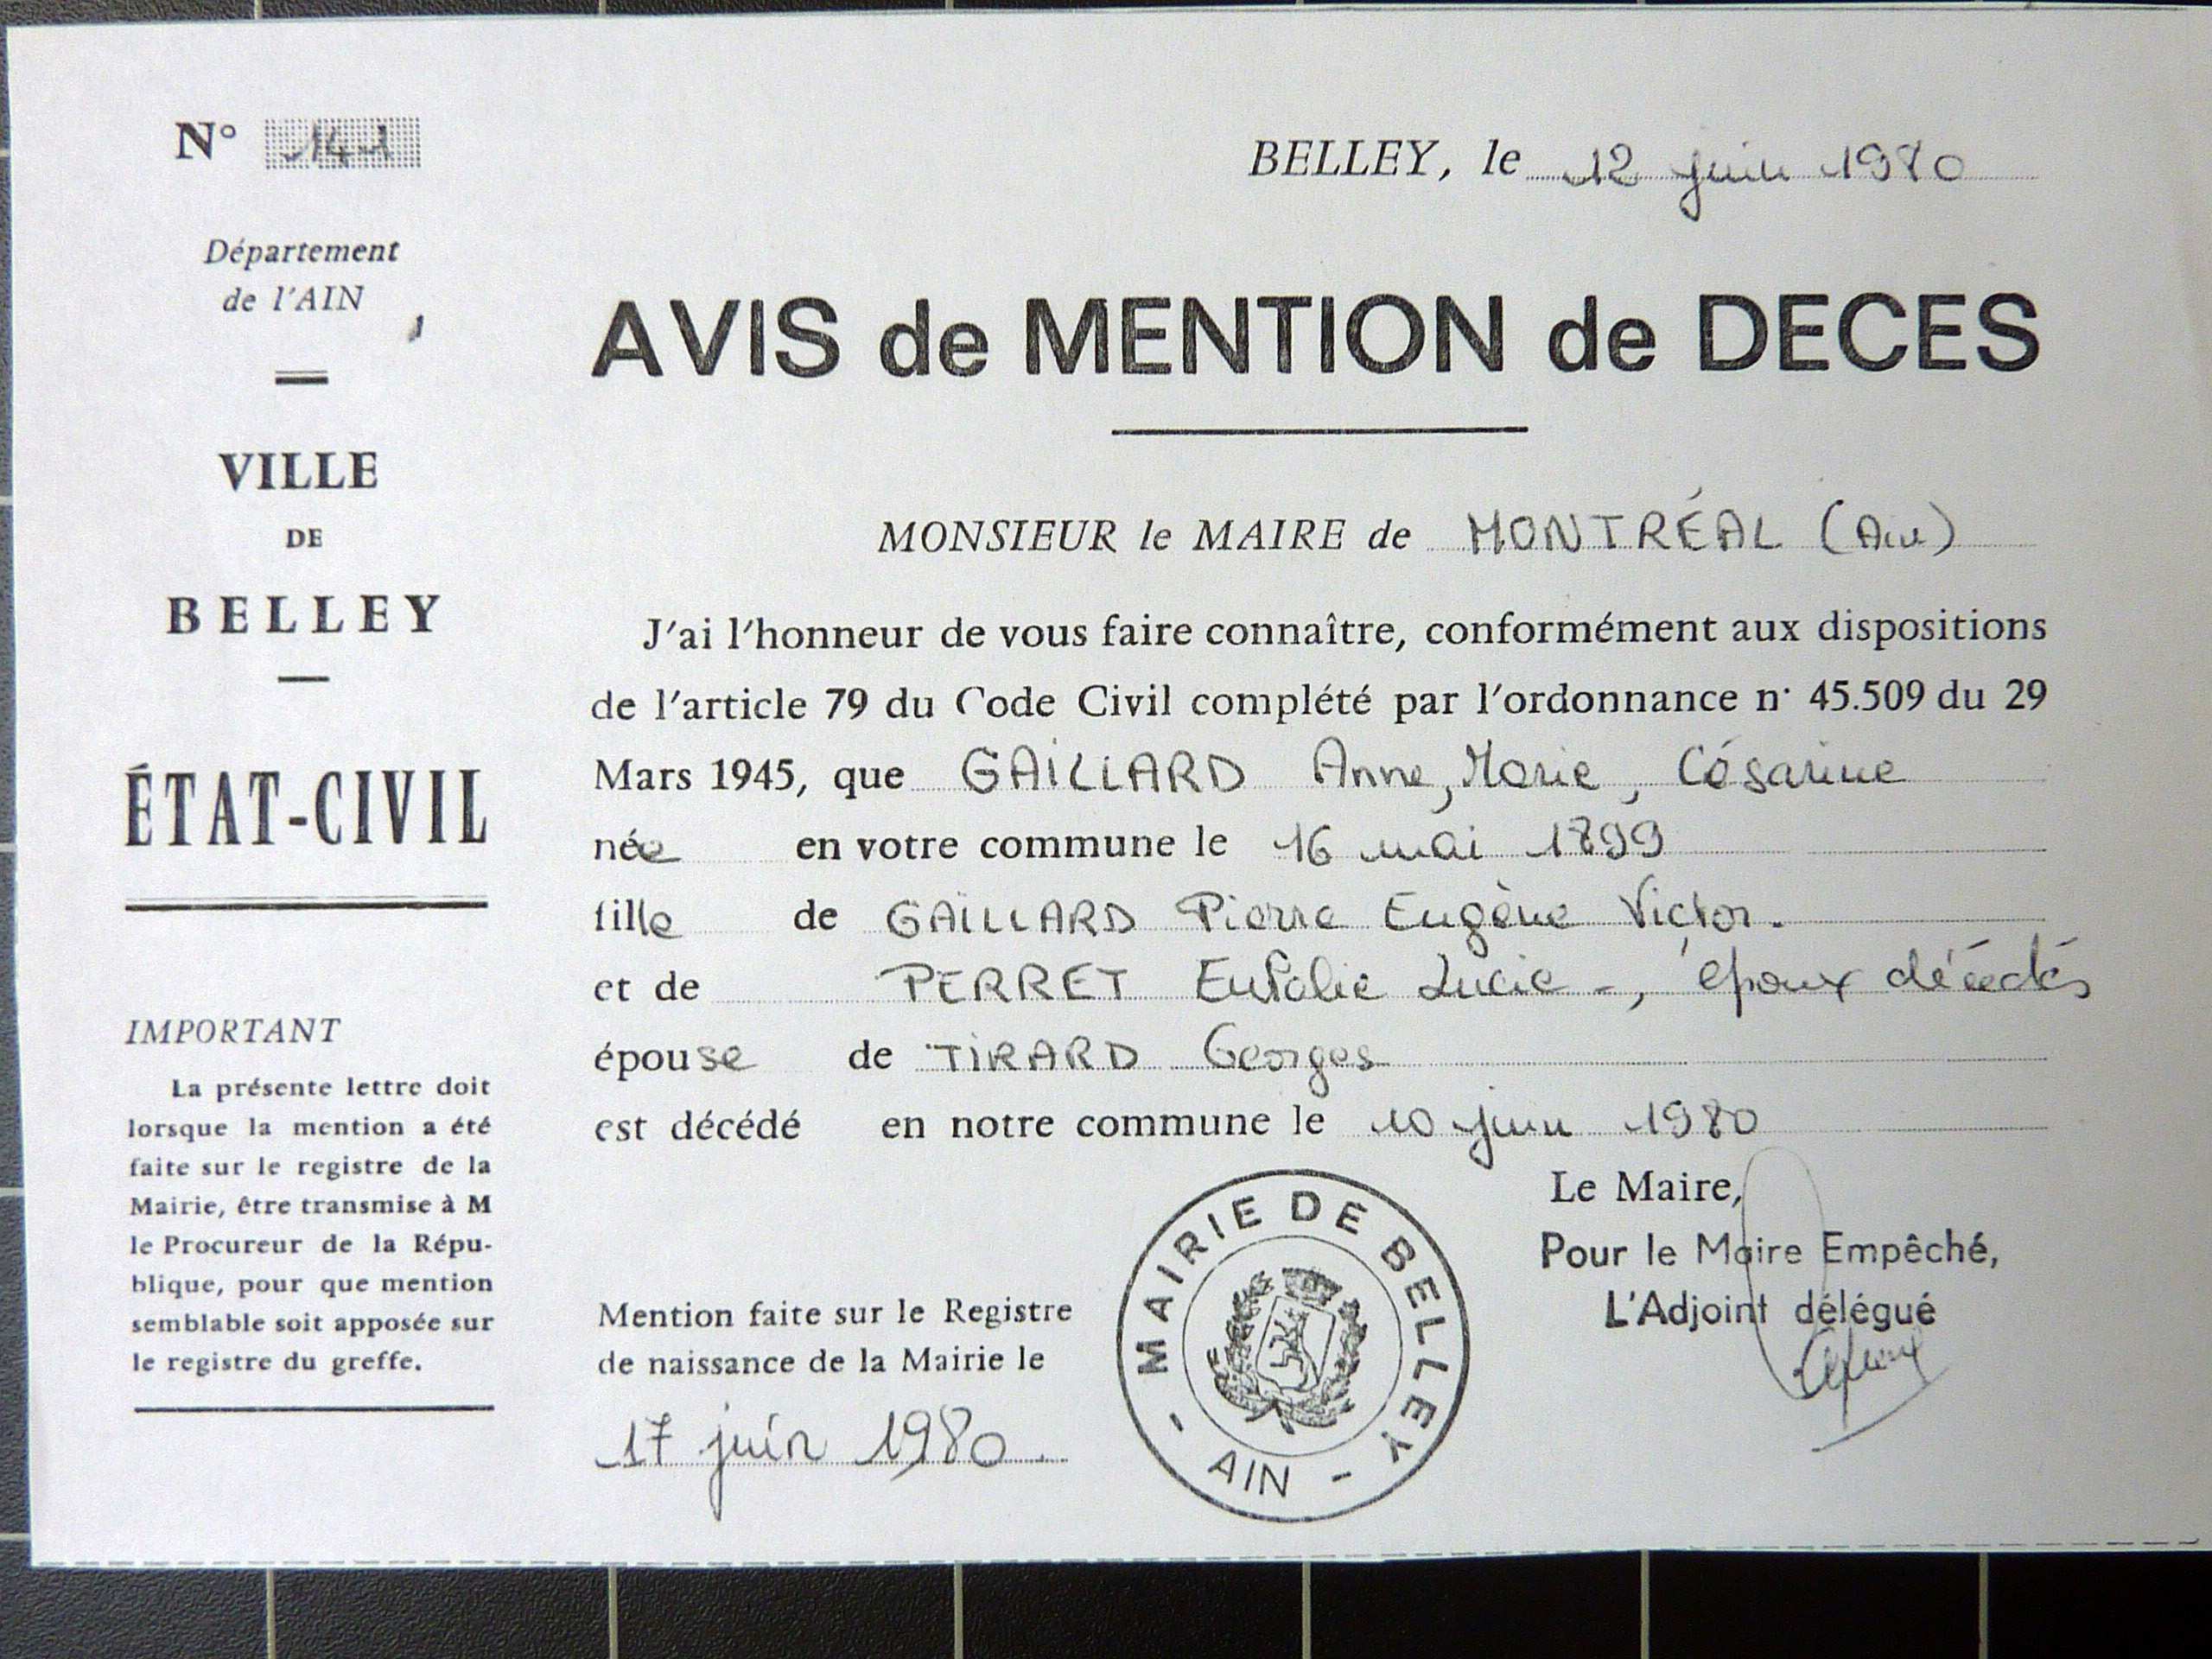 N° 141
Département
de l'AIN
VILLE
DE
BELLEY
ÉTAT-CIVIL
IMPORTANT
La présente lettre doit
lorsque la mention a été
faite sur le registre de la
Mairie, être transmise à M
le Procureur de la Répu-
blique, pour que mention
semblable soit apposée sur
le registre du greffe.
BELLEY, le 12 juin 1980
AVIS de MENTION de DECES
MONSIEUR le MAIRE de MONTRÉAL (Ain)
J'ai l'honneur de vous faire connaître, conformément aux dispositions
de l'article 79 du Code Civil complété par l'ordonnance n° 45.509 du 29
Mars 1945, que GAILLARD Anne, Marie, Césarine
née en votre commune le 16 mai 1899
fille de GAILLARD Pierre Eugène Victor.
et de PERRET Eulalie Lucie -, époux décédés
épouse de TIRARD Georges
est décédé en notre commune le 10 juin 1980
Le Maire,
Pour le Maire Empêché,
L'Adjoint délégué
Mention faite sur le Registre
de naissance de la Mairie le
17 juin 1980
MAIRIE DE BELLEY
- AIN -